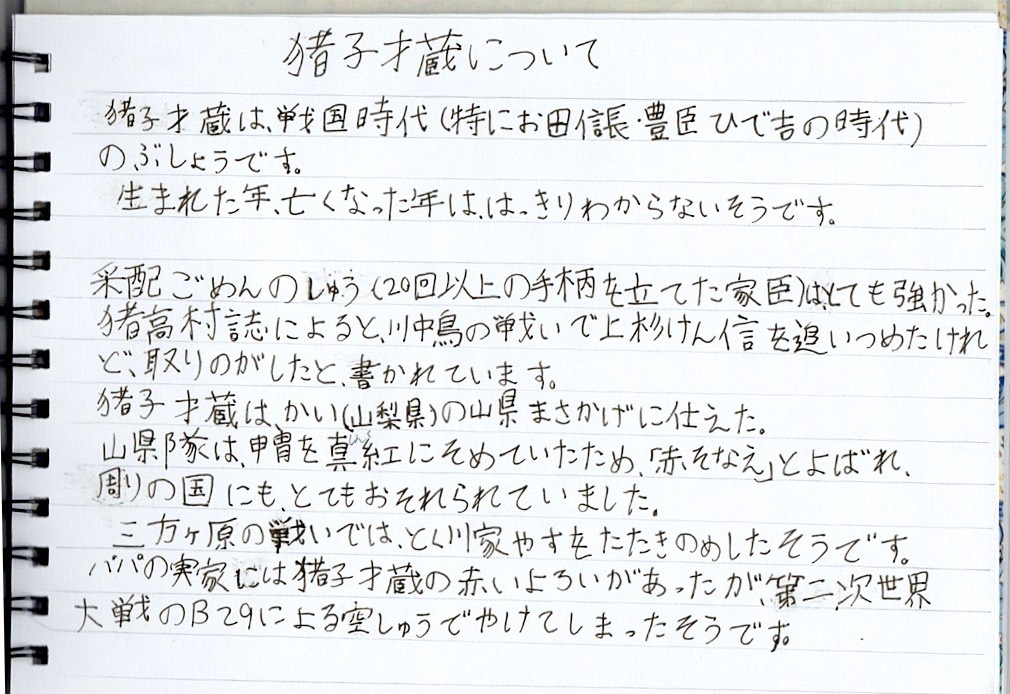 猪子才蔵について
猪子才蔵は、戦国時代(特にお田信長・豊臣ひで吉の時代)
のぶしょうです。
生まれた年、亡くなった年は、はっきりわからないそうです。
采配ごめんのしゅう(20回以上の手柄を立てた家臣)は、とても強かった。
猪高村誌によると、川中島の戦いで上杉けん信を追いつめたけれ
ど、取りのがしたと、書かれています。
猪子才蔵は、かい(山梨県)の山県まさかげに仕えた。
山県隊は、甲冑を真紅にそめていたため、「赤そなえ」とよばれ、
周りの国にも、とてもおそれられていました。
三方ヶ原の戦いでは、とく川家やすをたたきのめしたそうです。
パパの実家には猪子才蔵の赤いよろいがあったが、第二次世界
大戦のB29による空しゅうでやけてしまったそうです。